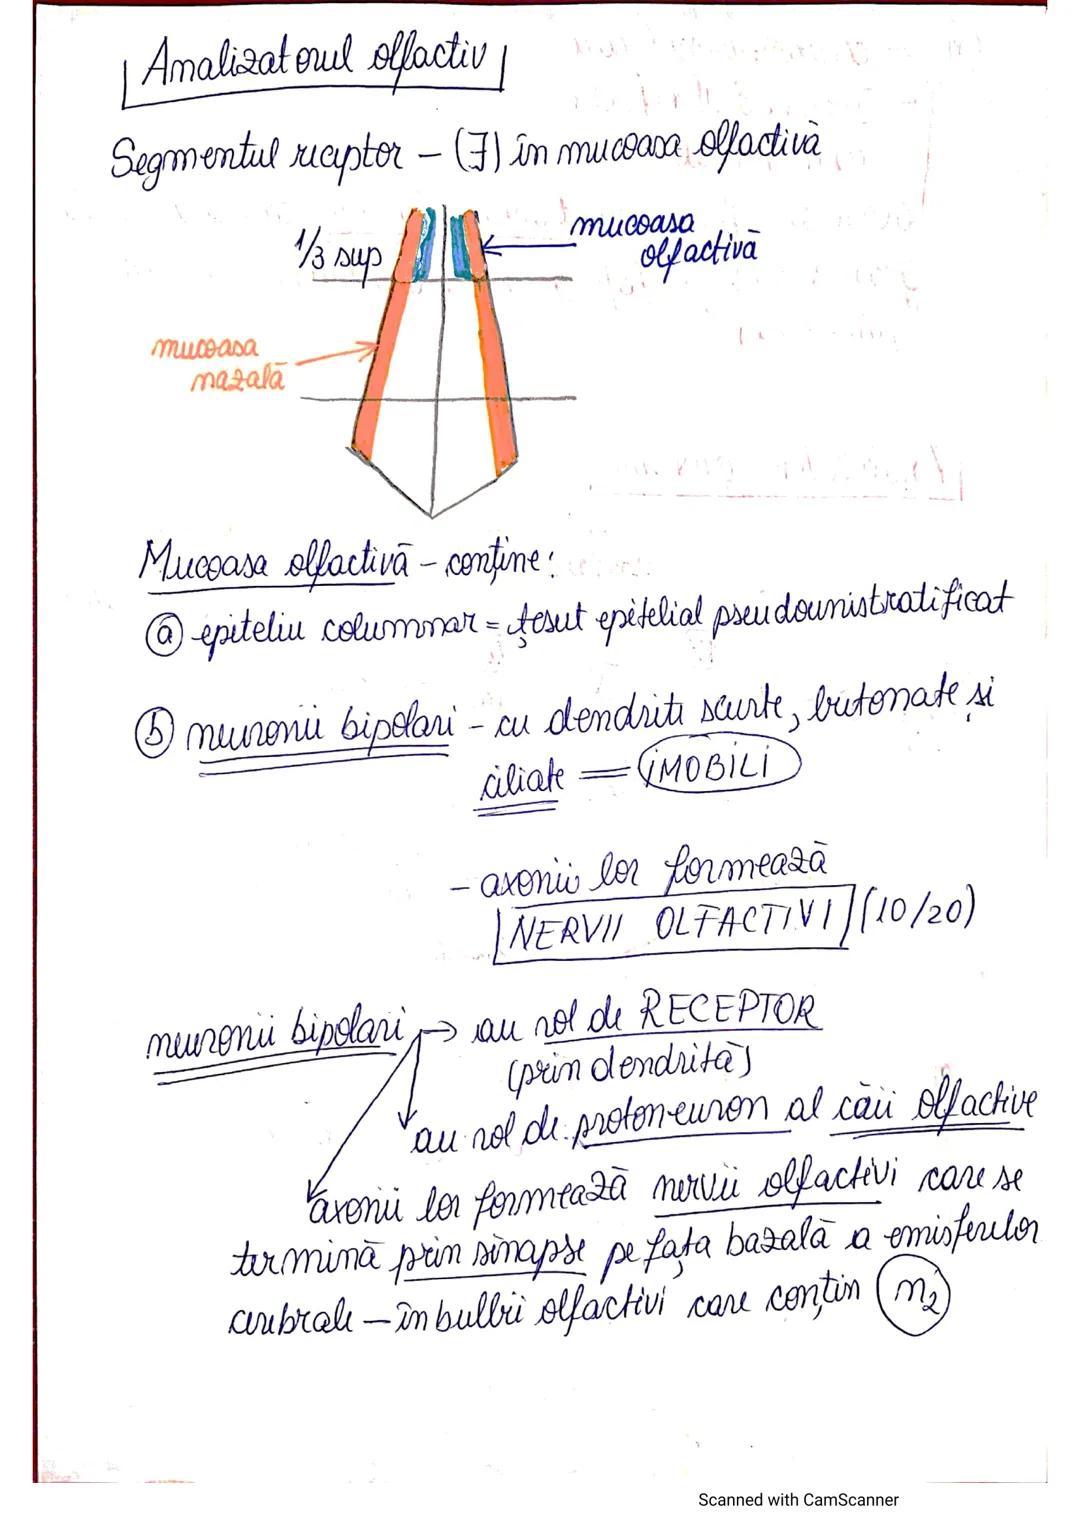 Analizatorul olfactiv
Segmentul receptor – (∃) în mucoasa olfactivă
1/3 sup
mucoasa
olfactivă
mucoasa
nazală
Mucoasa olfactivă – conține:
ⓐ epiteliu columnar = țesut epitelial pseudounistratificat
ⓑ neuronii bipolari – cu dendrite scurte, butonate și
ciliate = IMOBILI
- axonii lor formează
NERVII OLFACTIVI (10/20)
neuronii bipolari → au rol de RECEPTOR
(prin dendrită)
au rol de protoneuron al căii olfactive
axonii lor formează nervii olfactivi care se
termină prin sinapse pe fața bazală a emisferelor
cerebrale – în bulbii olfactivi care conțin n₂
Scanned with CamScanner